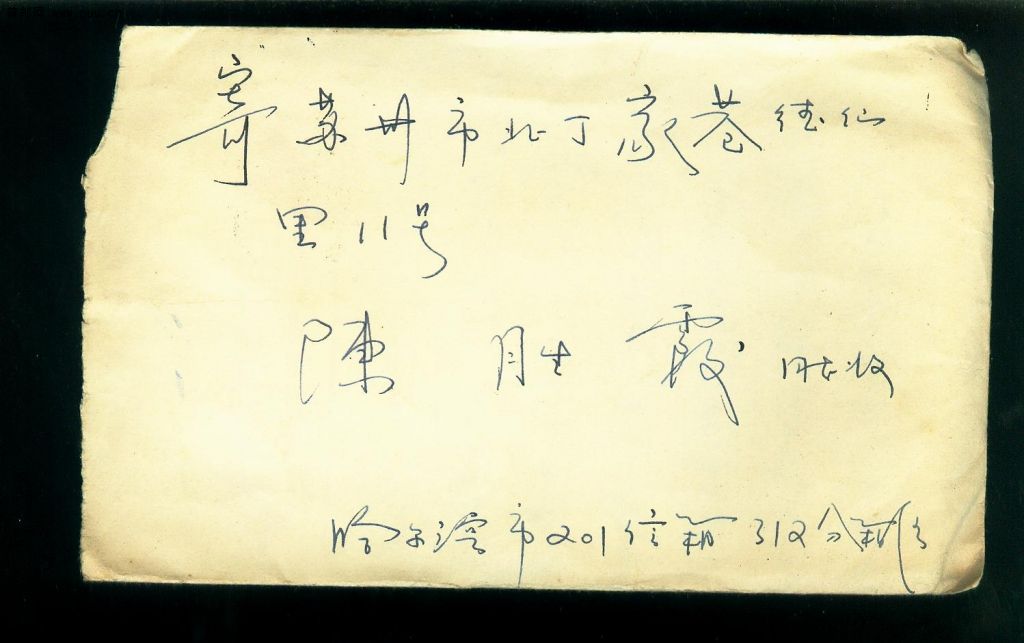 寄 苏州市北丁家巷德仙
里11号
陳 胜 霞 同志收
哈尔滨市201信箱312分箱